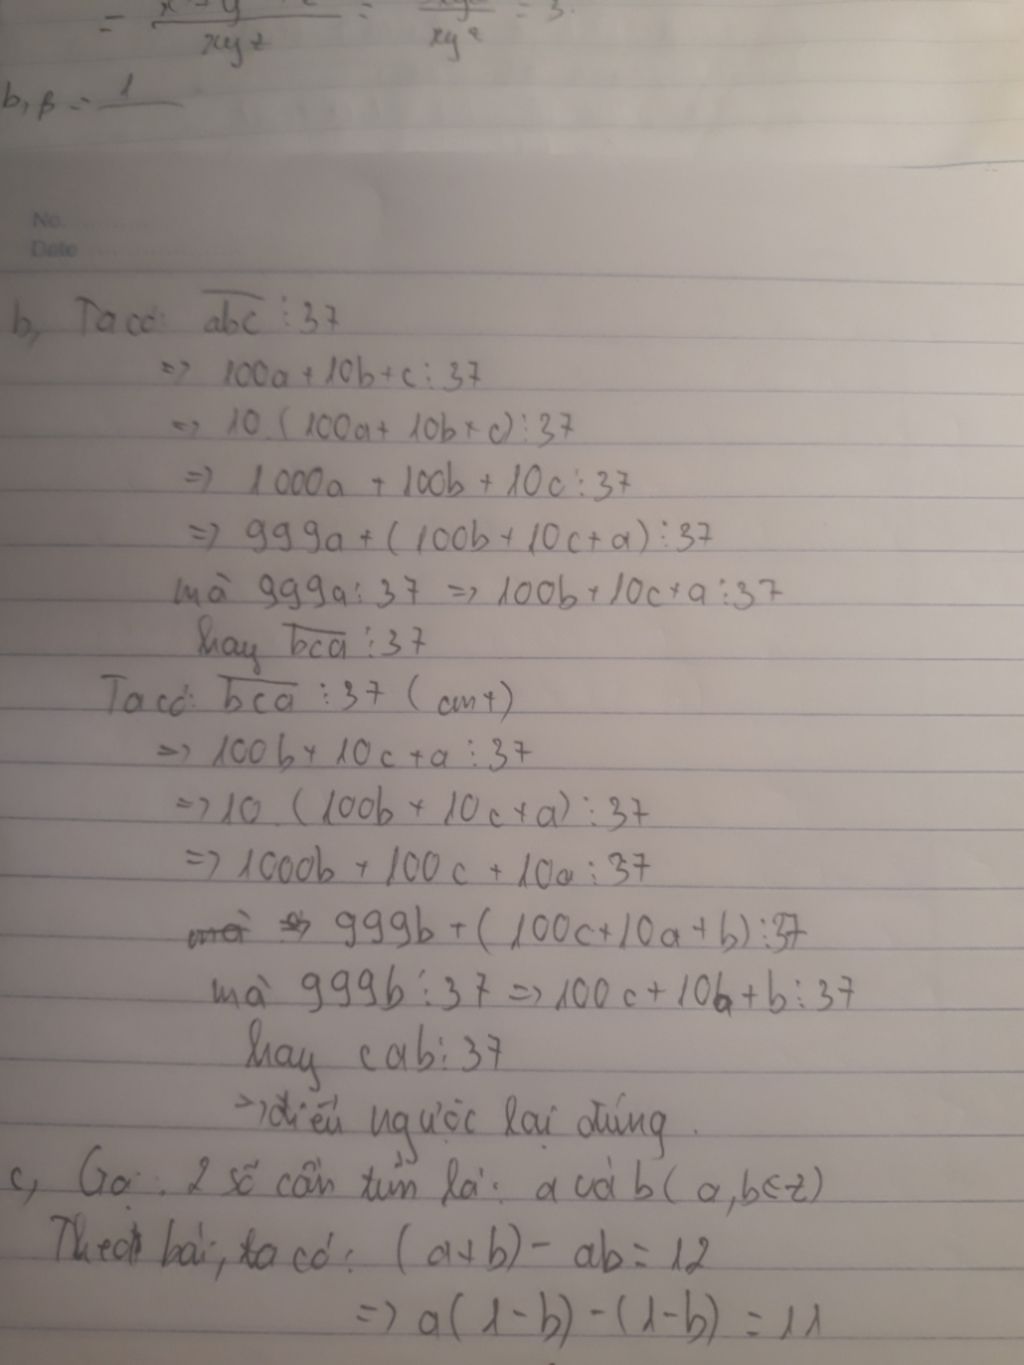 = / xyz = / xyz = 3.
b, B = 1
No.
Date
b, Ta có: abc ⋮ 37
=> 100a + 10b + c ⋮ 37
=> 10 (100a + 10b + c) ⋮ 37
=> 1000a + 100b + 10c ⋮ 37
=> 999a + (100b + 10c + a) ⋮ 37
mà 999a ⋮ 37 => 100b + 10c + a ⋮ 37
hay bca ⋮ 37
Ta có: bca ⋮ 37 (cmt)
=> 100b + 10c + a ⋮ 37
=> 10 (100b + 10c + a) ⋮ 37
=> 1000b + 100c + 10a ⋮ 37
=> 999b + (100c + 10a + b) ⋮ 37
mà 999b ⋮ 37 => 100c + 10a + b ⋮ 37
hay cab ⋮ 37
=> điều ngược lại đúng.
c, Gọi 2 số cần tìm là: a và b (a, b ∈ Z)
Theo bài, ta có: (a+b) - ab = 12
=> a(1-b) - (1-b) = 11